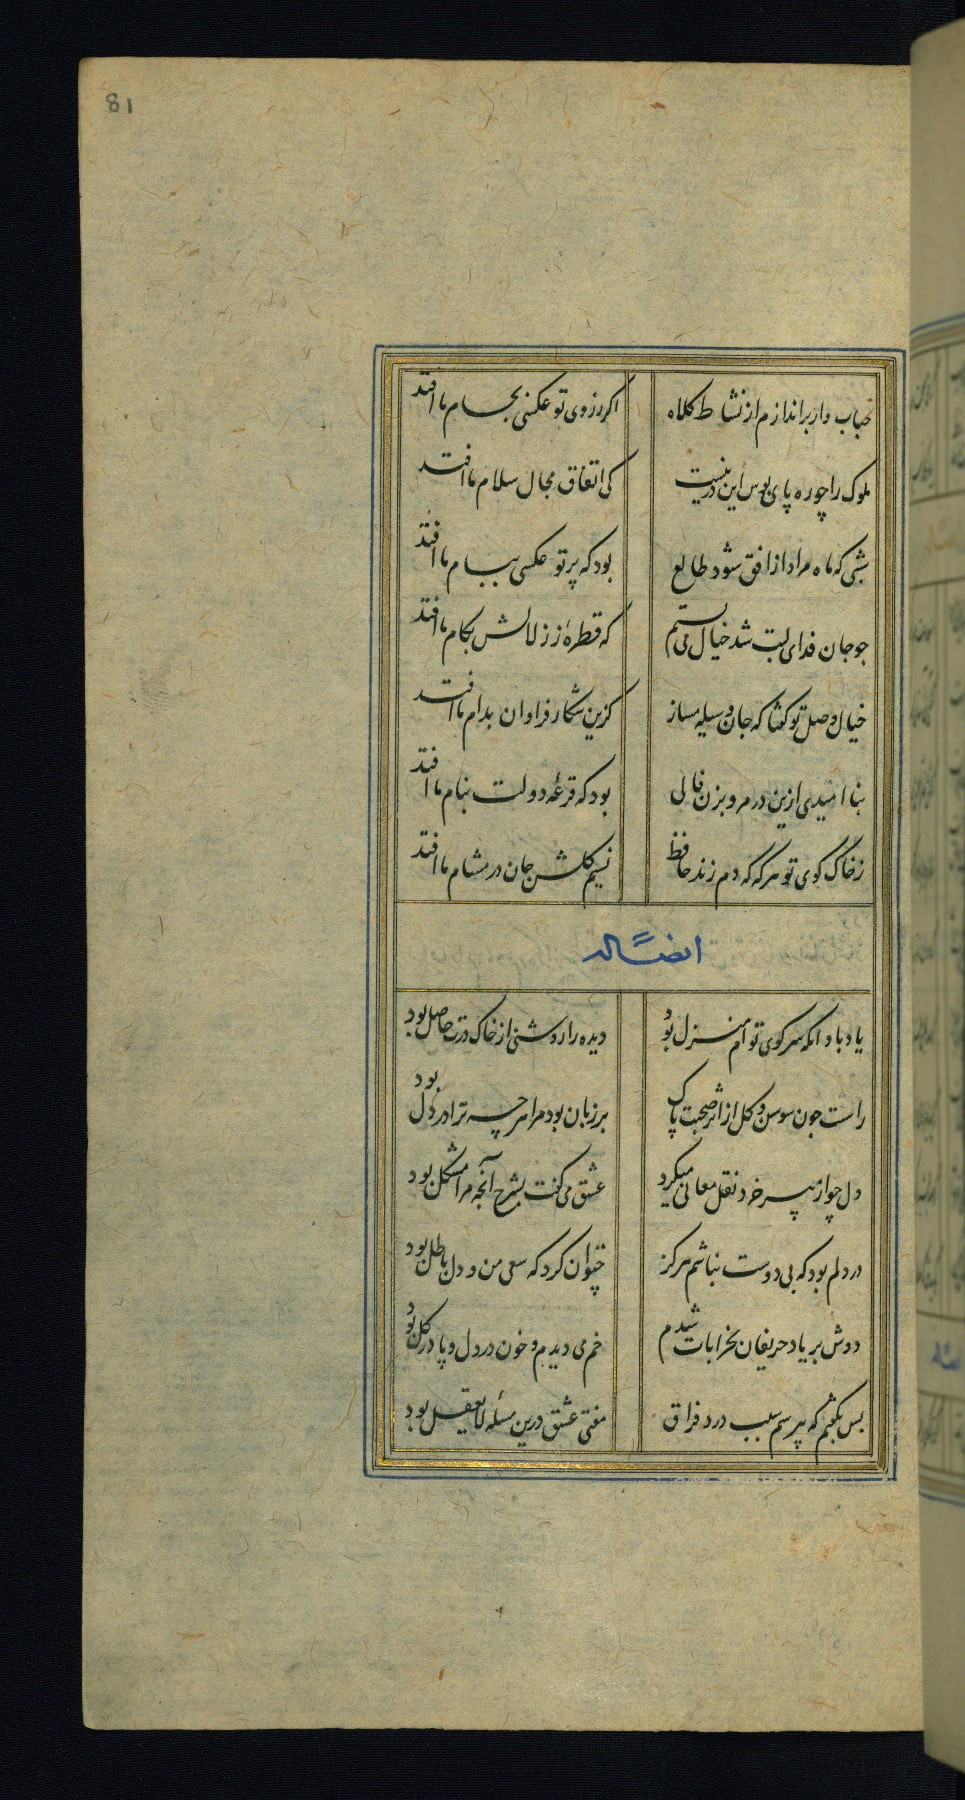 81
حباب وار براندازم از نشاط کلاه اکر ز روی تو عکسی بجام ما افتد
ملوک را چو ره پای بوس این در نیست کی اتفاق مجال سلام ما افتد
شبی که ماه مراد از افق شود طالع بود که پرتو عکسی ببام ما افتد
جو جان فدای لبت شد خیال می بستم که قطرهٔ ز زلالش بکام ما افتد
خیال وصل تو کفتا که جان وسیله مساز کزین شکار فراوان بدام ما افتد
بنا امیدی ازین در مرو بزن فالی بود که قرعهٔ دولت بنام ما افتد
ز خاک کوی تو هرکه که دم زند حافظ نسیم کلشن جان در مشام ما افتد
ایضًا له
یاد باد آنکه سر کوی توام منزل بود دیده را روشنی از خاک درت حاصل بود
راست جون سوسن و کل از اثر صحبت پاک بر زبان بود مرا هرچه ترا در دل بود
دل چو از پیر خرد نقل معانی میکرد عشق می کفت بشرح آنچه مرا مشکل بود
در دلم بود که بی دوست نباشم هرکز چتوان کرد که سعی من و دل باطل بود
دوش بر یاد حریفان بخرابات شدم خم می دیدم و خون در دل و پا در کل بود
بس بکشتم که بپرسم سبب درد فراق مفتی عشق درین مسئله لایعقل بود